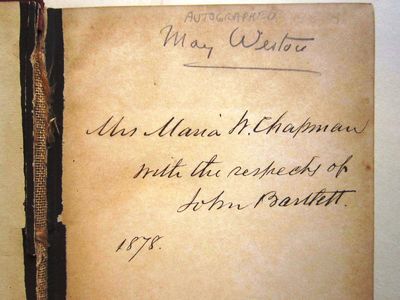 AUTOGRAPHED
May Weston
Mrs Maria W. Chapman
with the respects of
John Bartlett.
1878.